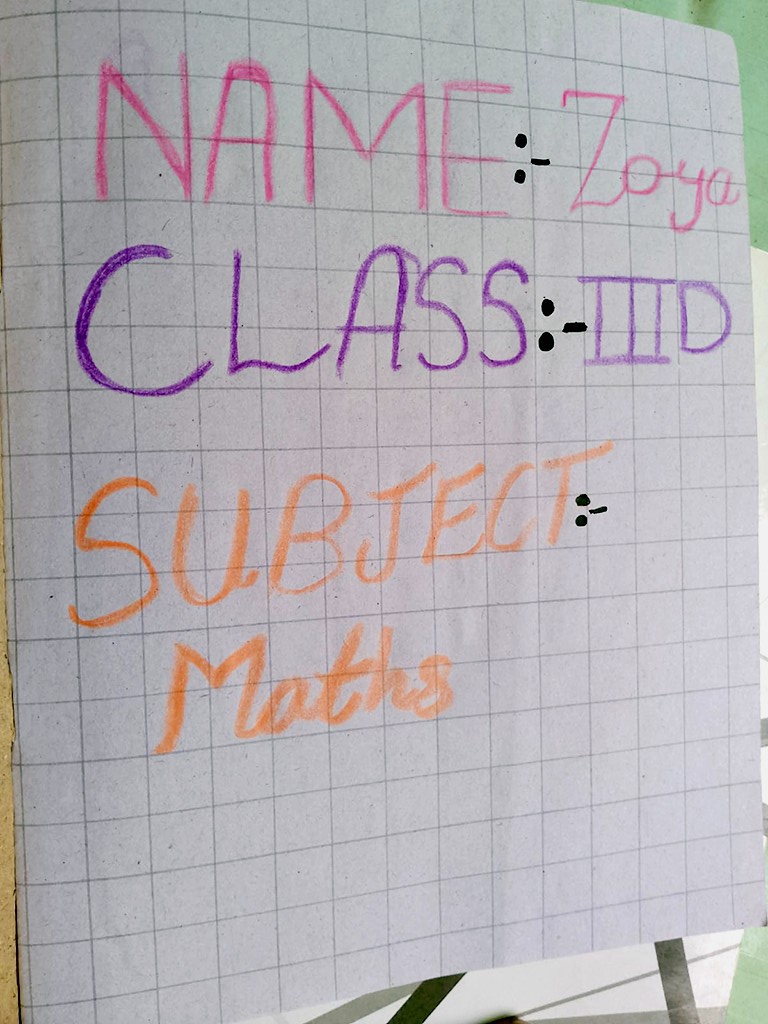 NAME:- Zoya
CLASS:- III D
SUBJECT:-
Maths